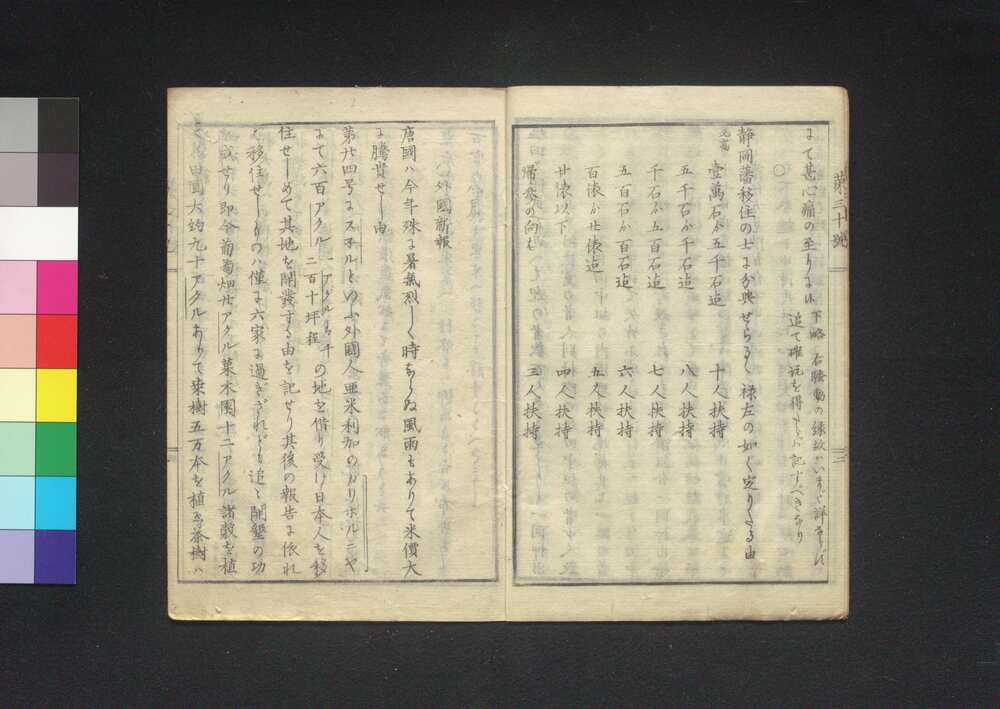 第三十號
まて甚心痛の至りに候 下略 右騒動の縁故ハいまだ詳ならず
追て確說を得ちバ記すべきなり
○
静岡藩移住の士に分與せらるゝ禄左の如く定りたる由
元高
壹萬石ゟ五千石迄 十人扶持
五千石ゟ千石迄 八人扶持
千石ゟ五百石迄 七人扶持
五百石ゟ百石迄 六人扶持
百俵ゟ廿俵迄 五人扶持
廿俵以下 四人扶持
帰参の向も 三人扶持
三
○外國新報
唐國ハ今年殊に暑氣烈しく時ならぬ風雨もありて米價大
に騰貴せし由
第廿四号にスネルといふ外國人亜米利加のカリホルニヤ
にて六百アクル 一アクルハ千二百十坪程 の地を借り受け日本人を移
住せしめて其地を開發する由を記せり其後の報告に依れ
バ移住せしものハ僅に六家に過ぎざれども追々開墾の功
を成せり即今葡萄畑廿アクル菓木園十二アクル諸穀を植
大約九十アクルありて桑樹五万本を植ゑ茶樹ハ